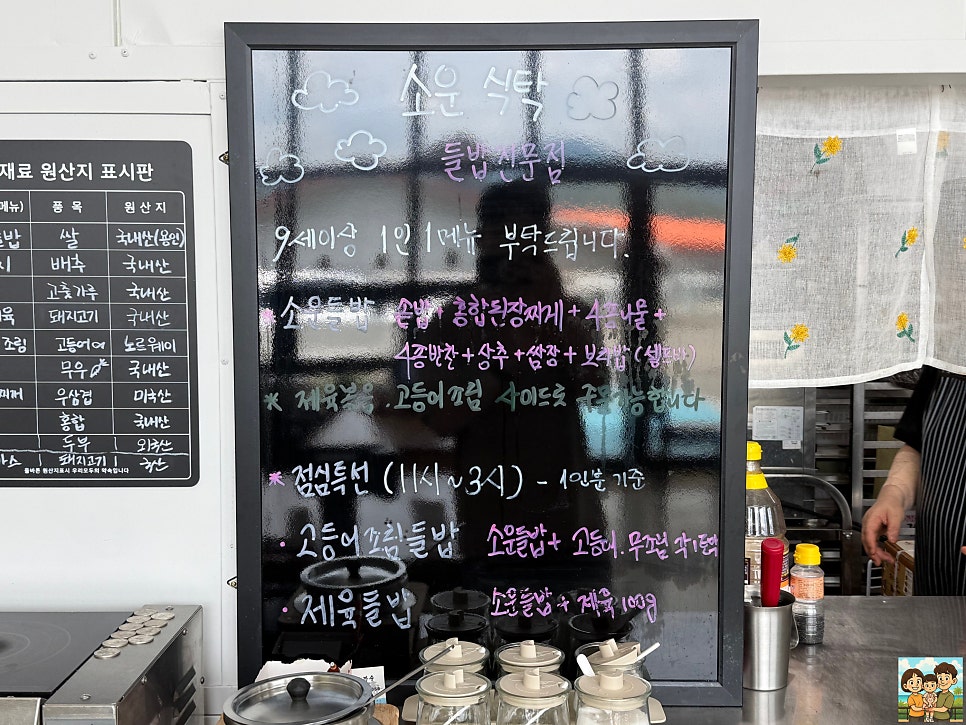 소운 식탁
들밥 전문점
9세이상 1인 1메뉴 부탁드립니다.
* 소운들밥 솥밥 + 홍합된장찌개 + 4종나물 +
4종반찬 + 상추 + 쌈장 + 보리밥 (셀프바)
* 제육볶음. 고등어조림 사이드로 주문가능합니다
* 점심특선 (11시~3시) - 1인분 기준
· 고등어조림들밥 소운들밥 + 고등어.무조림 각1토막
· 제육들밥 소운들밥 + 제육 100g
재료 원산지 표시판
메뉴) 품 목 원 산 지
들밥 쌀 국내산(용인)
배추 국내산
고춧가루 국내산
제육 돼지고기 국내산
조림 고등어 노르웨이
무우 국내산
우삼겹 미국산
홍합 국내산
두부 외국산
돼지고기 국산
올바른 원산지표시 우리모두의 약속입니다